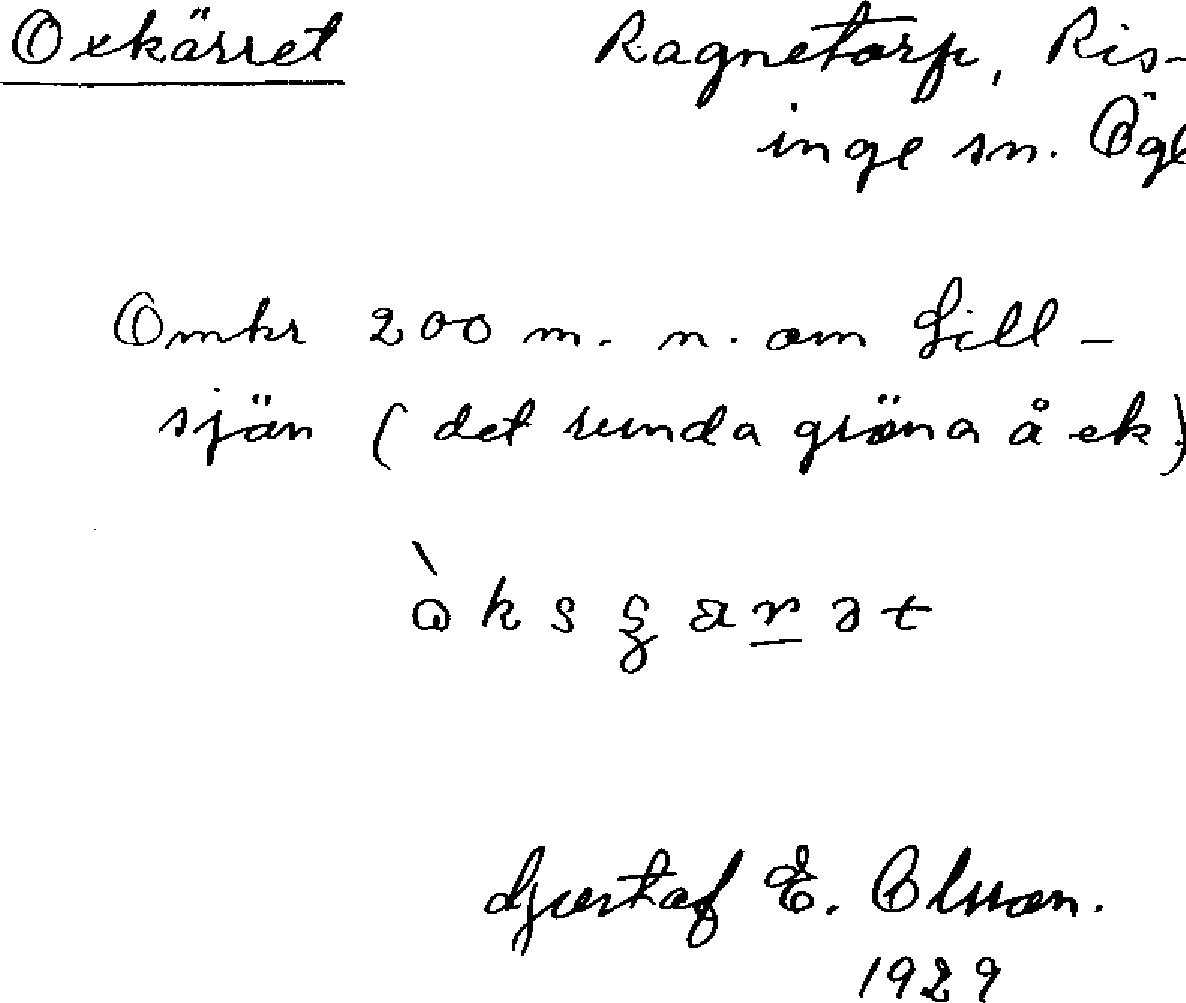 Oxkärret Ragnetorp, Ris-
inge sn. Ögl
Omkr 200 m. n. om Lill-
sjön (det runda gröna å ek)
Gustaf E. Olsson.
1929